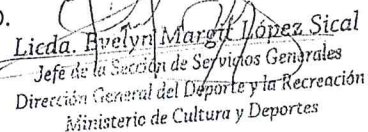 Licda. Evelyn Margit López Sical
Jefe de la Sección de Servicios Generales
Dirección General del Deporte y la Recreación
Ministerio de Cultura y Deportes